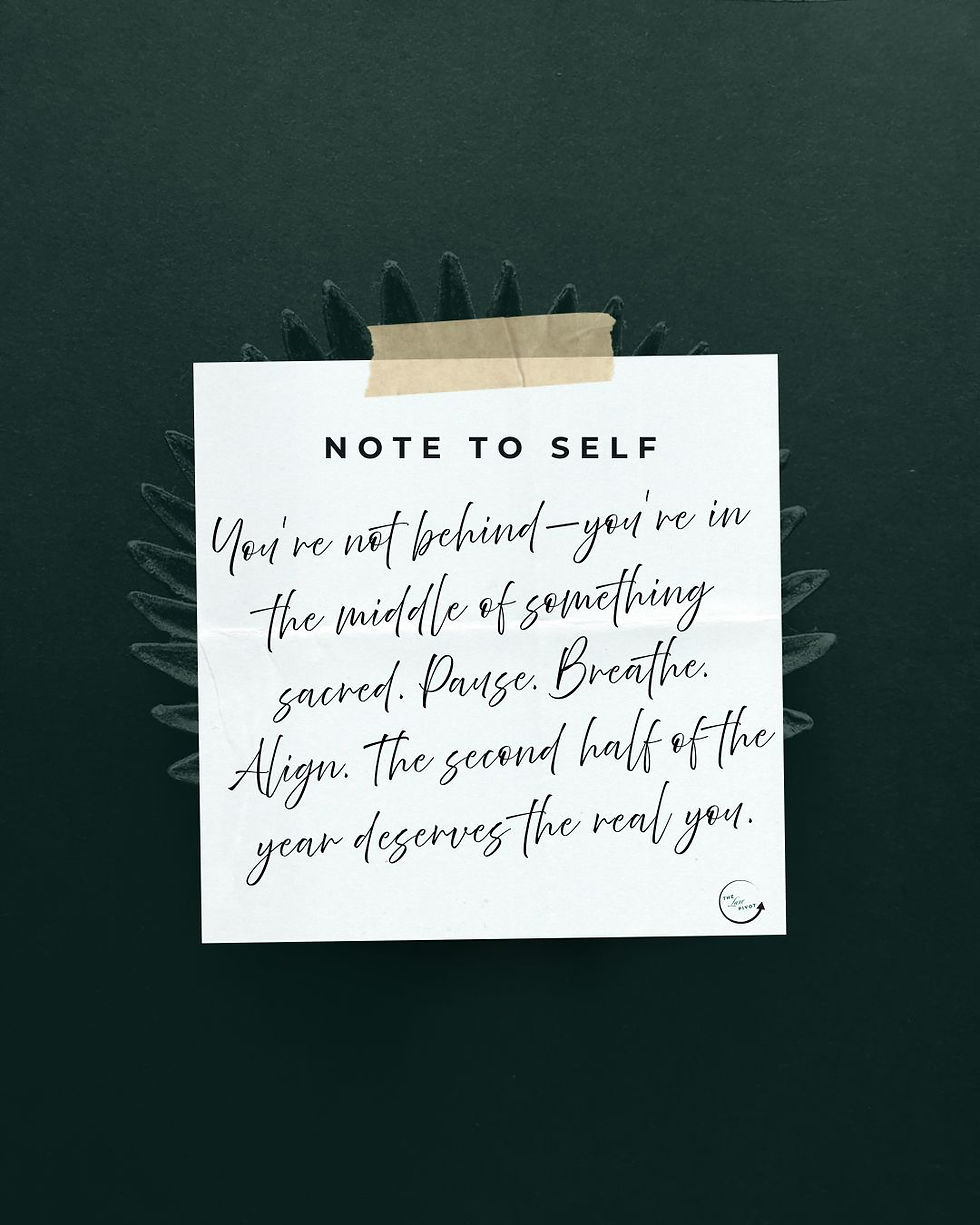 NOTE TO SELF
You're not behind—you're in
the middle of something
sacred. Pause. Breathe.
Align. The second half of the
year deserves the real you.
THE
Law
PIVOT